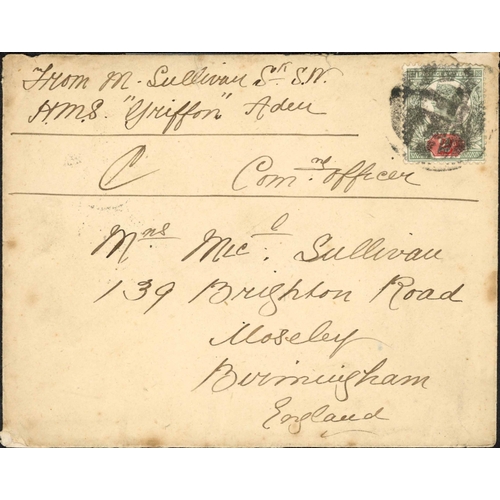 From M. Sullivan S.W.
H.M.S. "Griffon" Aden
C Comne Officer
Mrs Micl Sullivan
139 Brighton Road
Moseley
Birmingham
England